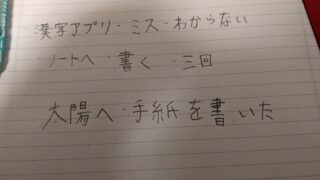 漢字アプリ・ミス・わからない
ノートへ 書く 三回
太陽へ手紙を書いた